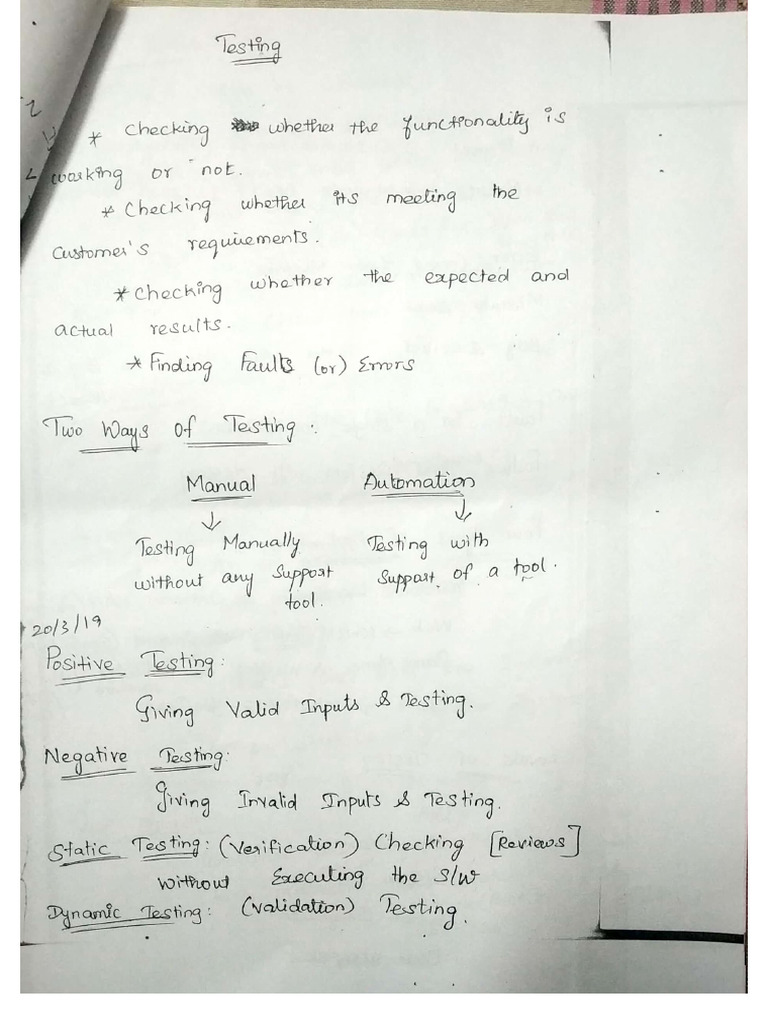 Testing
* Checking whether the functionality is
working or not.
* Checking whether its meeting the
customer's requirements.
* Checking whether the expected and
actual results.
* Finding Faults (or) Errors
Two Ways of Testing :
Manual Automation
Testing Manually Testing with
without any support support of a tool.
tool.
20/3/19
Positive Testing:
Giving Valid Inputs & Testing.
Negative Testing:
Giving Invalid Inputs & Testing.
Static Testing: (Verification) Checking [Reviews]
without Executing the S/W
Dynamic Testing: (Validation) Testing.